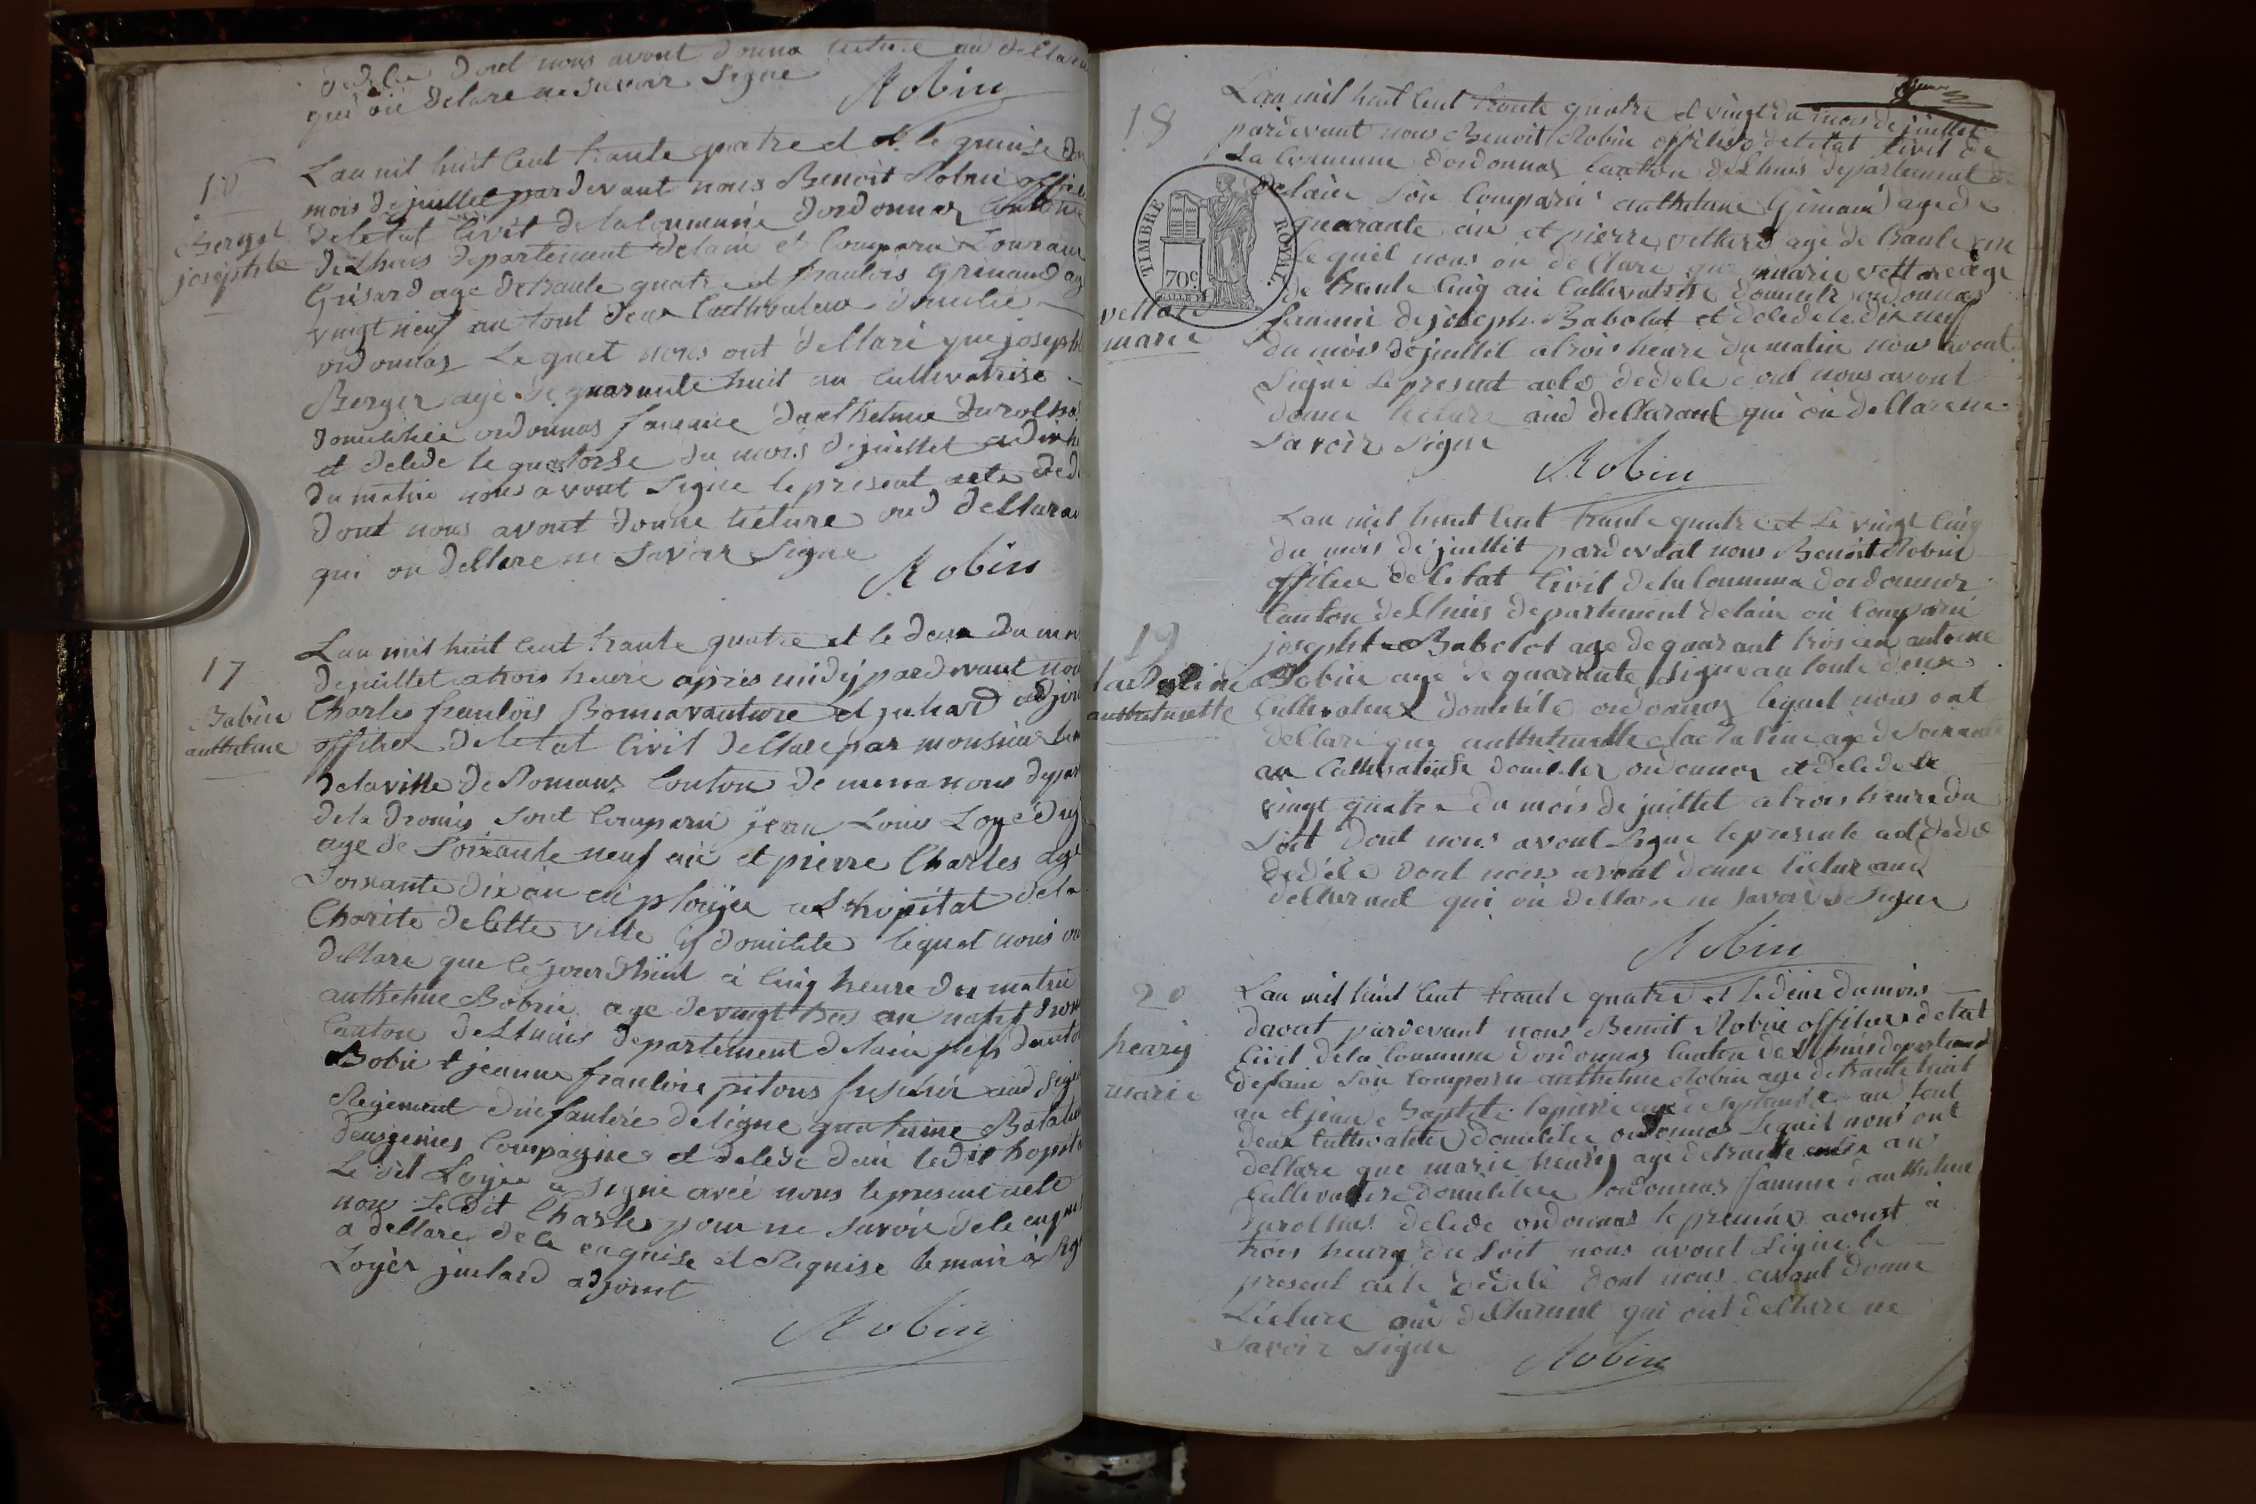 dedele dont nous avont donna lecture au dellara
qui on delare ne Savoir Signe
Robin
Berger
josephte
L'an mil huit Cent trante quatre et le quinse du
mois de juillet pardevant nous Benoit Robin offi
deletat Civit de la Commune dordonnaz Canton
deLhuis departement delain et Comparu
Grisard age de trante quatre et franlois Grinand ag
vingt neuf an tout deux Cultivateur domilie
ordonnaz Lequel nous ont dellaré que joseph
Berger age de quarante huit an Cultivatrise
domilihée ordonnas famme danthelme Durolha
et delede le quatorse du mois de juillet a dix h
du matin nous avont Signe le present acte ded
dont nous avont donne lecture aud dellaran
qui on dellare ne Savoir Signe
Robin
17
Robin
anthelme
L'an mil huit Cent trante quatre et le deux du moi
de juillet atrois heure après midy pardevant nou
Charles franlois Bonnavanture et juliard adjoin
offilier deletat Civil dellare par monsieur
delaville de Romans Conton de
dela dromis Sont Comparu jean Louis Loye
age de Soixante neuf an et pierre Charles age
Soixante dix an employer a Lhopital dela
Charite de Cette ville y domilile lequel nous on
dellare que Cejourdhuit à Cinq heure du matin
anthelme Robin age devingt trois an natif
Canton de Lhuis departement delain fils danto
Robin et jeanne franloise pitons fusilier aud
Regiment dinfanterie de ligne quatrieme Batalion
deuxjemes Compagnie et delede dans ledit hopital
Le dit Loyer a Signe avec nous le present acte
non Le dit Charles pour ne Savoir dele enquis
a dellare dele enquise et Requise le maire
Loyer juliard adjoint
Robin
18
vettard
marie
TIMBRE ROYAL
70c
L'an mil huit Cent trante quatre et vingt du mois de juillet
pardevant nous Benoit Robin offilier deletat Civil de
La Commune dordonnaz Canton deLhuis departement
delain Son Comparu anthelme Ginand age de
quarante an et pierre vettard age de trante an
le quel nous on dellare que marie vettard age
de trante Cinq an Cultivatrise domilile ordonnas
femme de joseph Babolat et delede le dix neuf
du mois de juillet atrois heure du matin nous avont
Signe Le present acte dedele dont nous avont
donne lecture aud dellarant qui on dellare ne
Savoir Signe
Robin
19
anthelmette
L'an mil huit Cent trante quatre et Le vingt Cinq
du mois de juillet pardevant nous Benoit Robin
offilier deletat Civil dela Commune dordonnaz
Canton deLhuis departement delain on Comparu
josepht Babolot age de quarant trois an antoine
Robin age de quarante Sigue an toute deux
Cultivateur domilile ordonnoz lequel nous ont
dellare que anthelmette age de Soixante
an Cultivateuse domilile ordonnoz et delede le
vingt quatre du mois de juillet atrois heure du
Soit dont nous avont Signe le presente act dede
dedéle dont nous avont donne lecture aud
dellarant qui on dellare ne Savoir Signe
Robin
20
henriy
marie
L'an mil huit Cent trante quatre et le deux du mois
davout pardevant nous Benoit Robin offilier detat
Civil dela Commune dordonnas Canton de Lhuis departement
delain Son Comparu anthelme Robin age de trante huit
an et jean Baptite lapierre age de Septante an tout
deux Cultivatier domilile ordonnas Lequel nous ont
dellare que marie henriy age de trante an
Cultivatrise domililee ordonnaz famme danthelme
durolhas delede ordonnas le premier avoust à
trois heure du Soit nous avont Signe le
present acte dedele dont nous avont donne
Lecture aud dellarant qui ont dellare ne
Savoir Signe
Robin